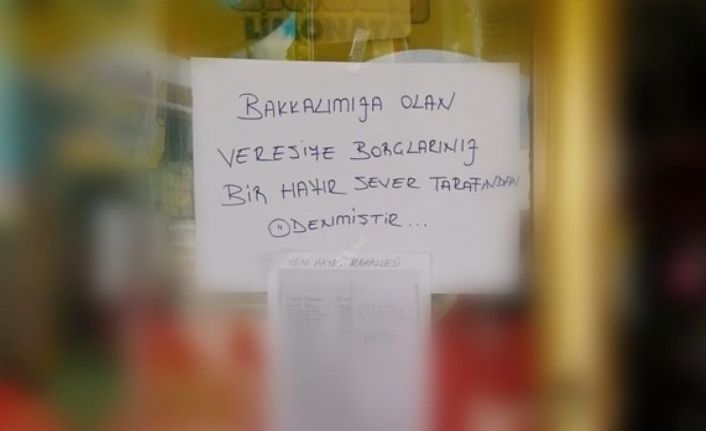 LİMONATA
BAKKALIMIZA OLAN
VERESİYE BORÇLARINIZ
BİR HAYIR SEVER TARAFINDAN
ÖDENMİŞTİR...
YENİ HAYAT MAHALLESİ